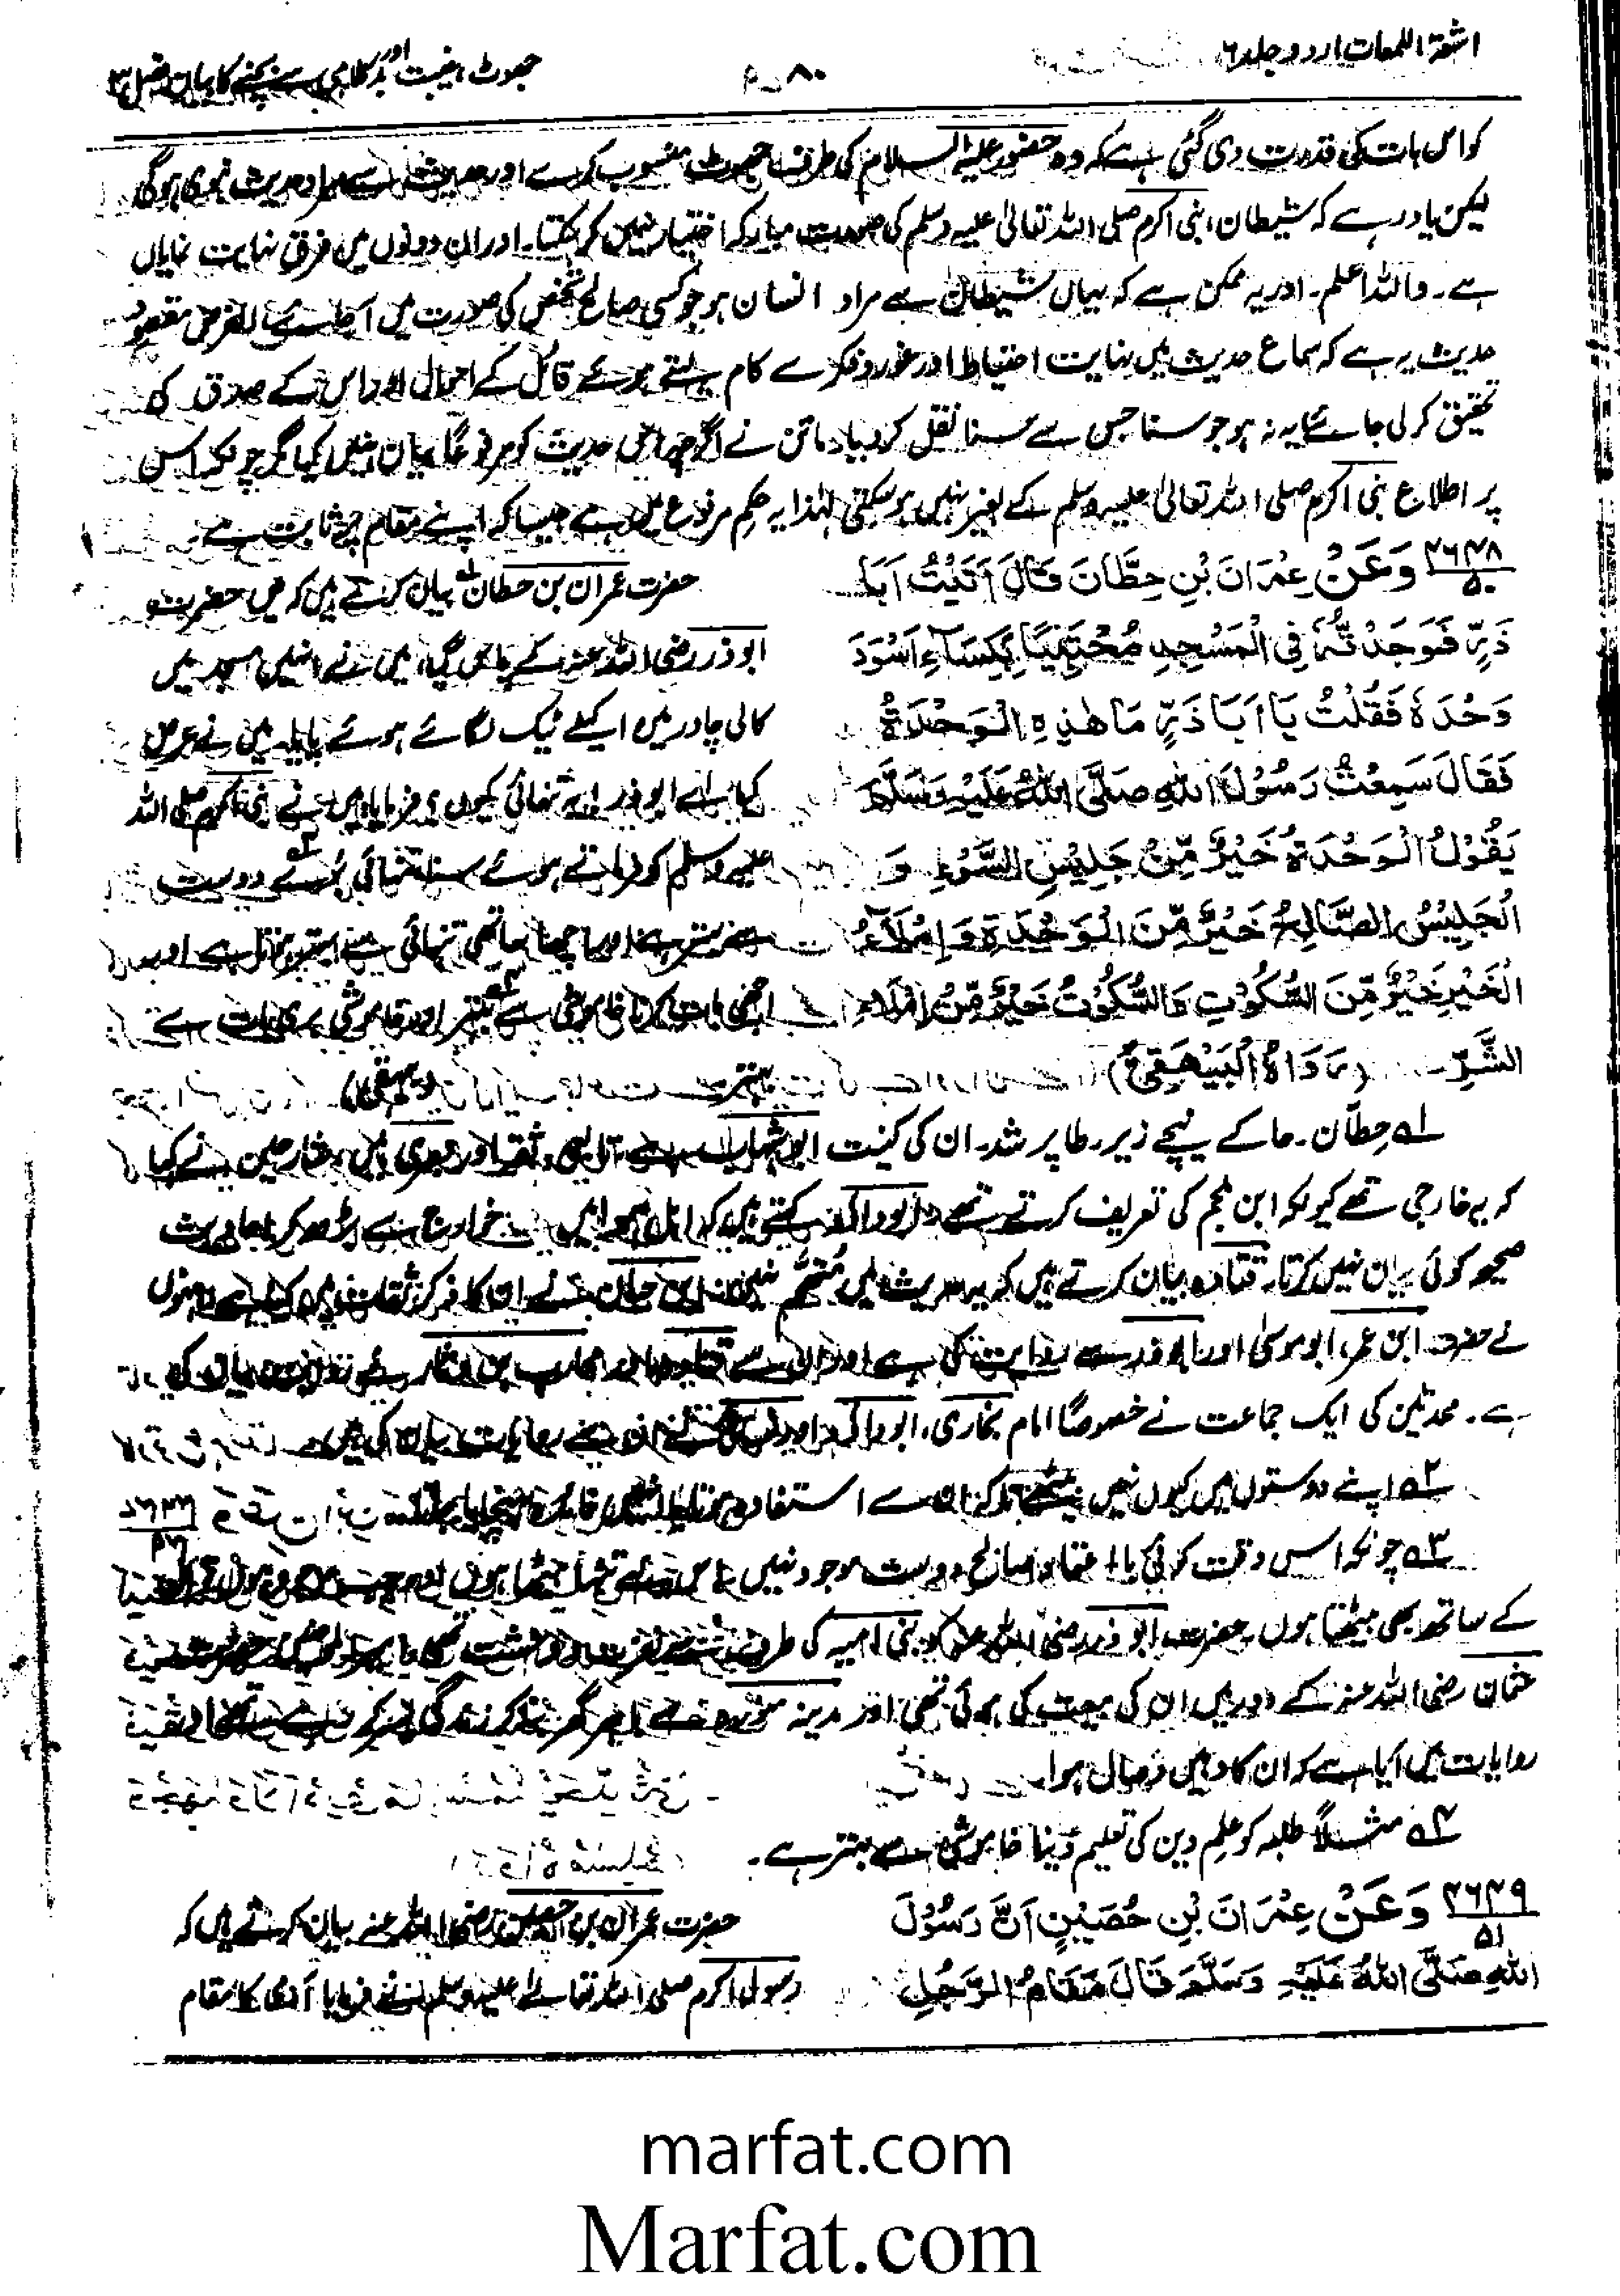 اشعۃ اللمعات اردو جلد ۶
۸۰
جھوٹ، غیبت اور بدکلامی سے بچنے کا بیان فصل ۳
کو اس بات کی قدرت دی گئی ہے کہ وہ حضور علیہ السلام کی طرف جھوٹ منسوب کرے اور حدیث سے مراد حدیث نبوی ہوگی
لیکن یاد رہے کہ شیطان، نبی اکرم صلی اللہ تعالیٰ علیہ وسلم کی صورت مبارکہ اختیار نہیں کر سکتا۔ اور ان دونوں میں فرق نہایت نمایاں
ہے۔ واللہ اعلم۔ اور یہ ممکن ہے کہ یہاں شیطان سے مراد انسان ہو جو کسی صالح شخص کی صورت میں الغرض مقصود
حدیث یہ ہے کہ سماع حدیث میں نہایت احتیاط اور غور و فکر سے کام لیتے ہوئے قائل کے احوال اور اس کے صدق کی
تحقیق کر لی جائے یہ نہ ہو جو سنا جس سے سنا نقل کر دیا۔ ماتن نے اگرچہ اس حدیث کو مرفوعاً بیان نہیں کیا مگر چونکہ اس
پر اطلاع نبی اکرم صلی اللہ تعالیٰ علیہ وسلم کے بغیر نہیں ہو سکتی لہٰذا یہ حکم مرفوع میں ہے جیسا کہ اپنے مقام پر ثابت ہے۔
۴۶۴۸/۵۰ وَعَنْ عِمْرَانَ بْنِ حِطَّانَ قَالَ اَتَيْتُ اَبَا
ذَرٍّ فَوَجَدْتُّهٗ فِي الْمَسْجِدِ مُحْتَبِيًا بِكِسَاءٍ اَسْوَدَ
وَحْدَهٗ فَقُلْتُ يَا اَبَا ذَرٍّ مَا هٰذِهِ الْوَحْدَةُ
فَقَالَ سَمِعْتُ رَسُوْلَ اللهِ صَلَّى اللهُ عَلَيْهِ وَسَلَّمَ
يَقُوْلُ الْوَحْدَةُ خَيْرٌ مِّنْ جَلِيْسِ السُّوْءِ وَ
الْجَلِيْسُ الصَّالِحُ خَيْرٌ مِّنَ الْوَحْدَةِ وَاِمْلَاءُ
الْخَيْرِ خَيْرٌ مِّنَ السُّكُوْتِ وَالسُّكُوْتُ خَيْرٌ مِّنْ اِمْلَاءِ
الشَّرِّ (رَوَاهُ الْبَيْهَقِيُّ)
حضرت عمران بن حطان بیان کرتے ہیں کہ میں حضرت
ابوذر رضی اللہ عنہ کے پاس گیا، میں نے انہیں مسجد میں
کالی چادر میں اکیلے ٹیک لگائے ہوئے پایا۔ میں نے عرض
کیا اے ابوذر! یہ تنہائی کیوں؟ فرمایا میں نے نبی اکرم صلی اللہ
علیہ وسلم کو فرماتے ہوئے سنا تنہائی بُرے دوست
سے بہتر ہے اور اچھا ساتھی تنہائی سے بہتر ہے اور
اچھی بات کرنا خاموشی سے بہتر اور خاموشی بری بات سے
بہتر (بیہقی)
۱؎ حطّان۔ حا کے نیچے زیر۔ طا پر شد۔ ان کی کنیت ابو شہاب ہے تابعی، ثقہ اور بصری ہیں، شارحین نے کہا
کہ یہ خارجی تھے کیونکہ ابن ملجم کی تعریف کرتے تھے۔ ابوداؤد کہتے ہیں کہ اہل خوارج سے بڑھ کر احادیث
صحیحہ کوئی بیان نہیں کرتا۔ قتادہ بیان کرتے ہیں کہ یہ حدیث میں متہم نہیں۔ ابن حبان نے ان کا ذکر ثقات میں کیا ہے انہوں
نے حضرت ابن عمر، ابو موسیٰ اور ابوذر سے روایت کی ہے اور ان سے قتادہ اور محارب بن دثار نے روایت بیان کی
ہے۔ محدثین کی ایک جماعت نے خصوصاً امام بخاری، ابوداؤد اور نسائی نے ان سے روایت بیان کی ہیں۔
۲؎ اپنے دوستوں میں کیوں نہیں بیٹھتے تاکہ ان سے استفادہ
۳؎ چونکہ اس وقت کوئی بااعتماد صالح دوست موجود نہیں اس لئے تنہا بیٹھا ہوں
کے ساتھ بھی بیٹھتا ہوں۔ حضرت ابوذر رضی اللہ عنہ کو بنی امیہ کی طرف سے
عثمان رضی اللہ عنہ کے دور میں ان کی ہوئی تھی اور مدینہ منورہ سے باہر گھر بنا کر زندگی بسر کر رہے تھے
روایات میں آیا ہے کہ ان کا وہیں وصال ہوا۔
۴؎ مثلاً طلبہ کو علم دین کی تعلیم دینا خاموشی سے بہتر ہے۔
۴۶۴۹/۵۱ وَعَنْ عِمْرَانَ بْنِ حُصَيْنٍ اَنَّ رَسُوْلَ
اللهِ صَلَّى اللهُ عَلَيْهِ وَسَلَّمَ قَالَ مَقَامُ الرَّجُلِ
حضرت عمران بن حصین رضی اللہ عنہ بیان کرتے ہیں کہ
رسول اکرم صلی اللہ تعالیٰ علیہ وسلم نے فرمایا آدمی کا مقام
marfat.com
Marfat.com